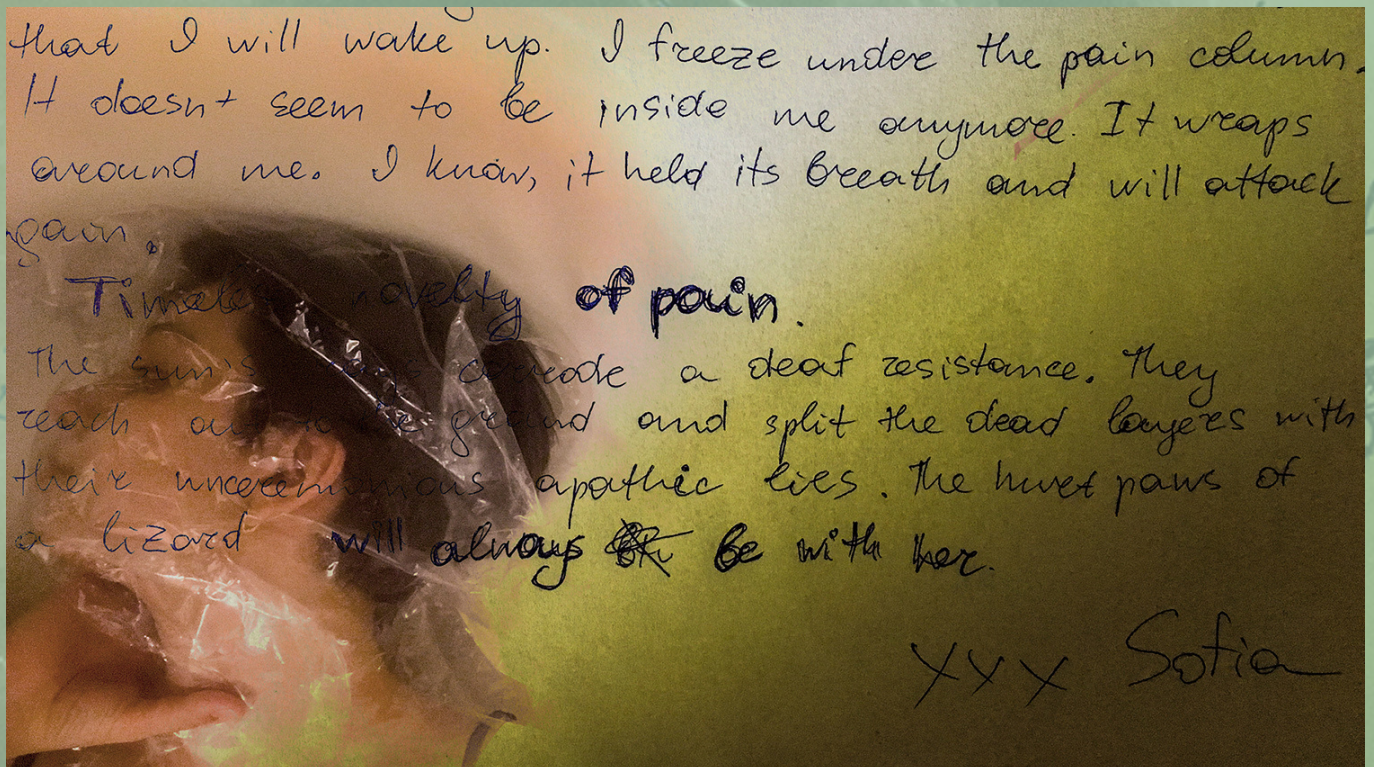 that I will wake up. I freeze under the pain column.
It doesn't seem to be inside me anymore. It wraps
around me. I know, it held its breath and will attack
gain.
novelty of pain.
The sun's corrode a deaf resistance. They
reach ground and split the dead layers with
their unceremonious apathic lies. The hurt paws of
a lizard will always be with her.
xxx Sofia